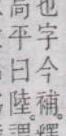 也字今補。釋
高平曰陸。謂